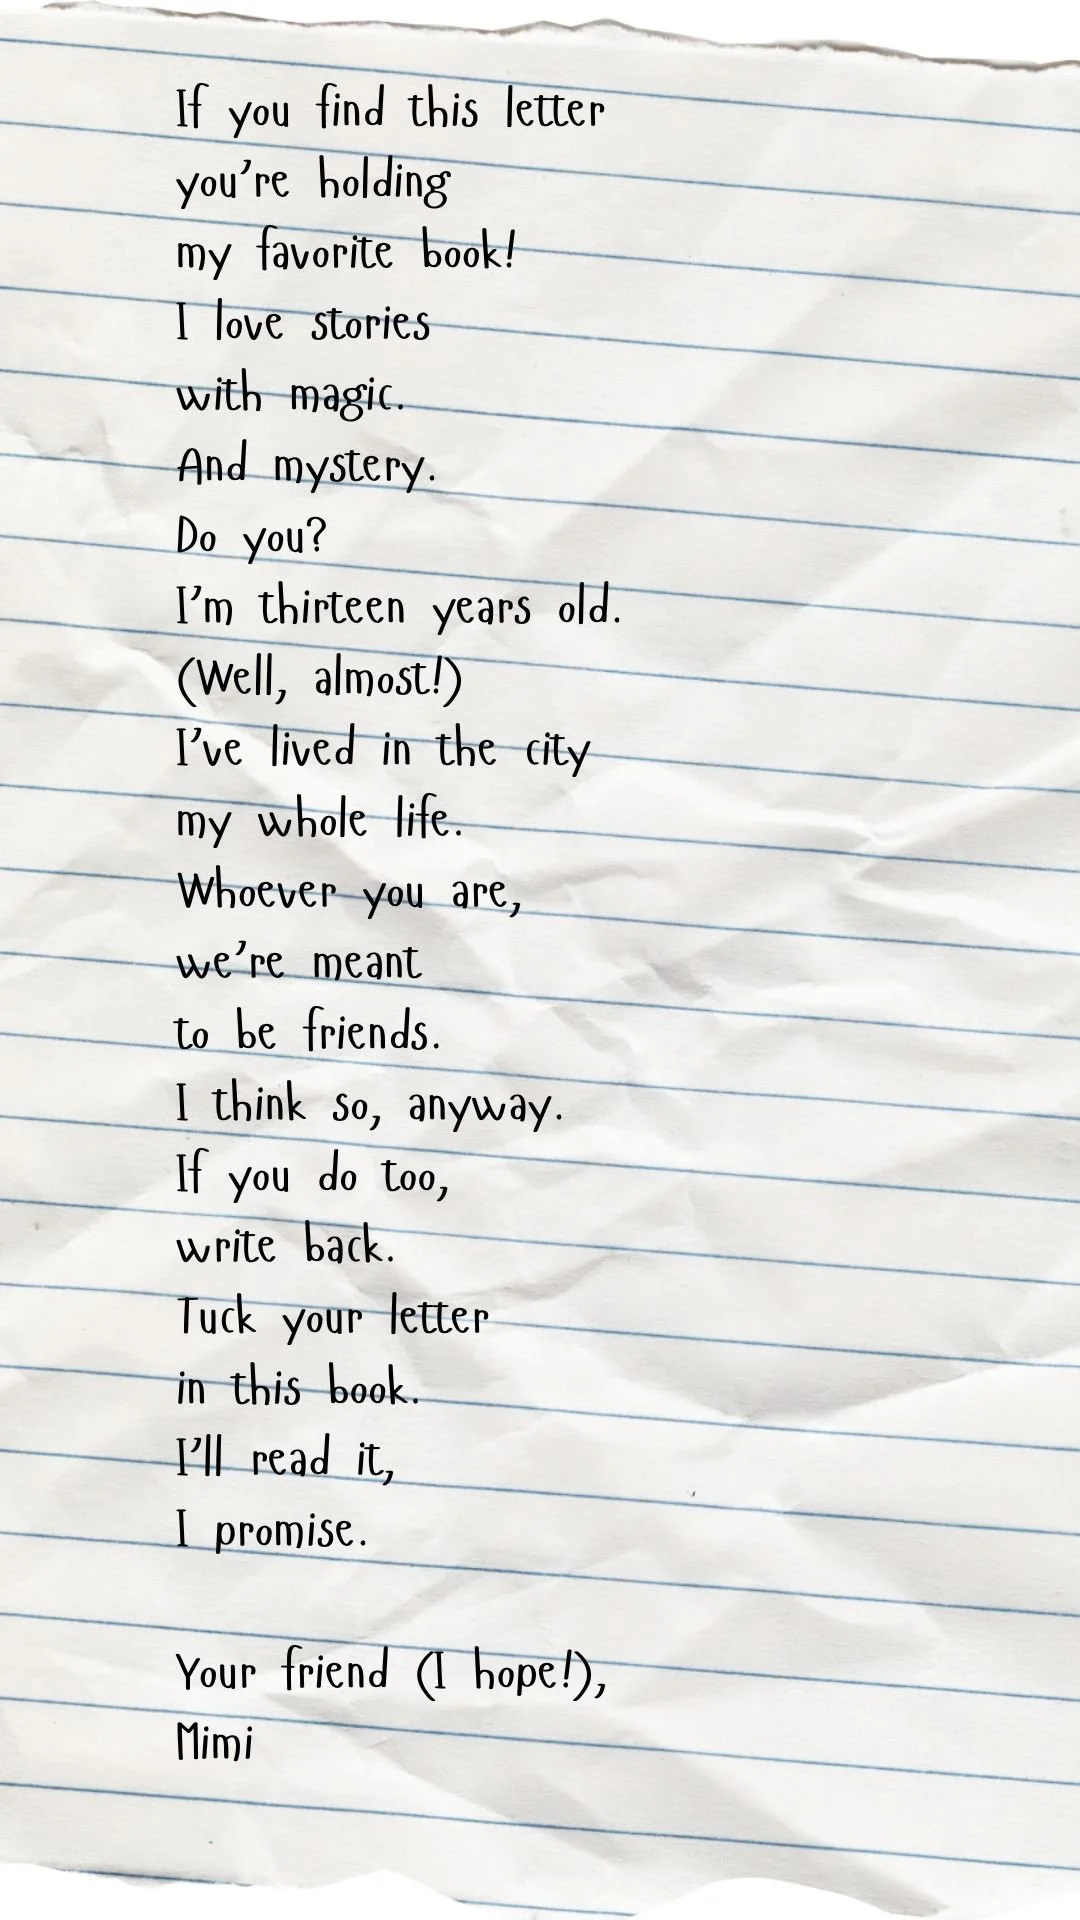 If you find this letter
you're holding
my favorite book!
I love stories
with magic.
And mystery.
Do you?
I'm thirteen years old.
(Well, almost!)
I've lived in the city
my whole life.
Whoever you are,
we're meant
to be friends.
I think so, anyway.
If you do too,
write back.
Tuck your letter
in this book.
I'll read it,
I promise.
Your friend (I hope!),
Mimi